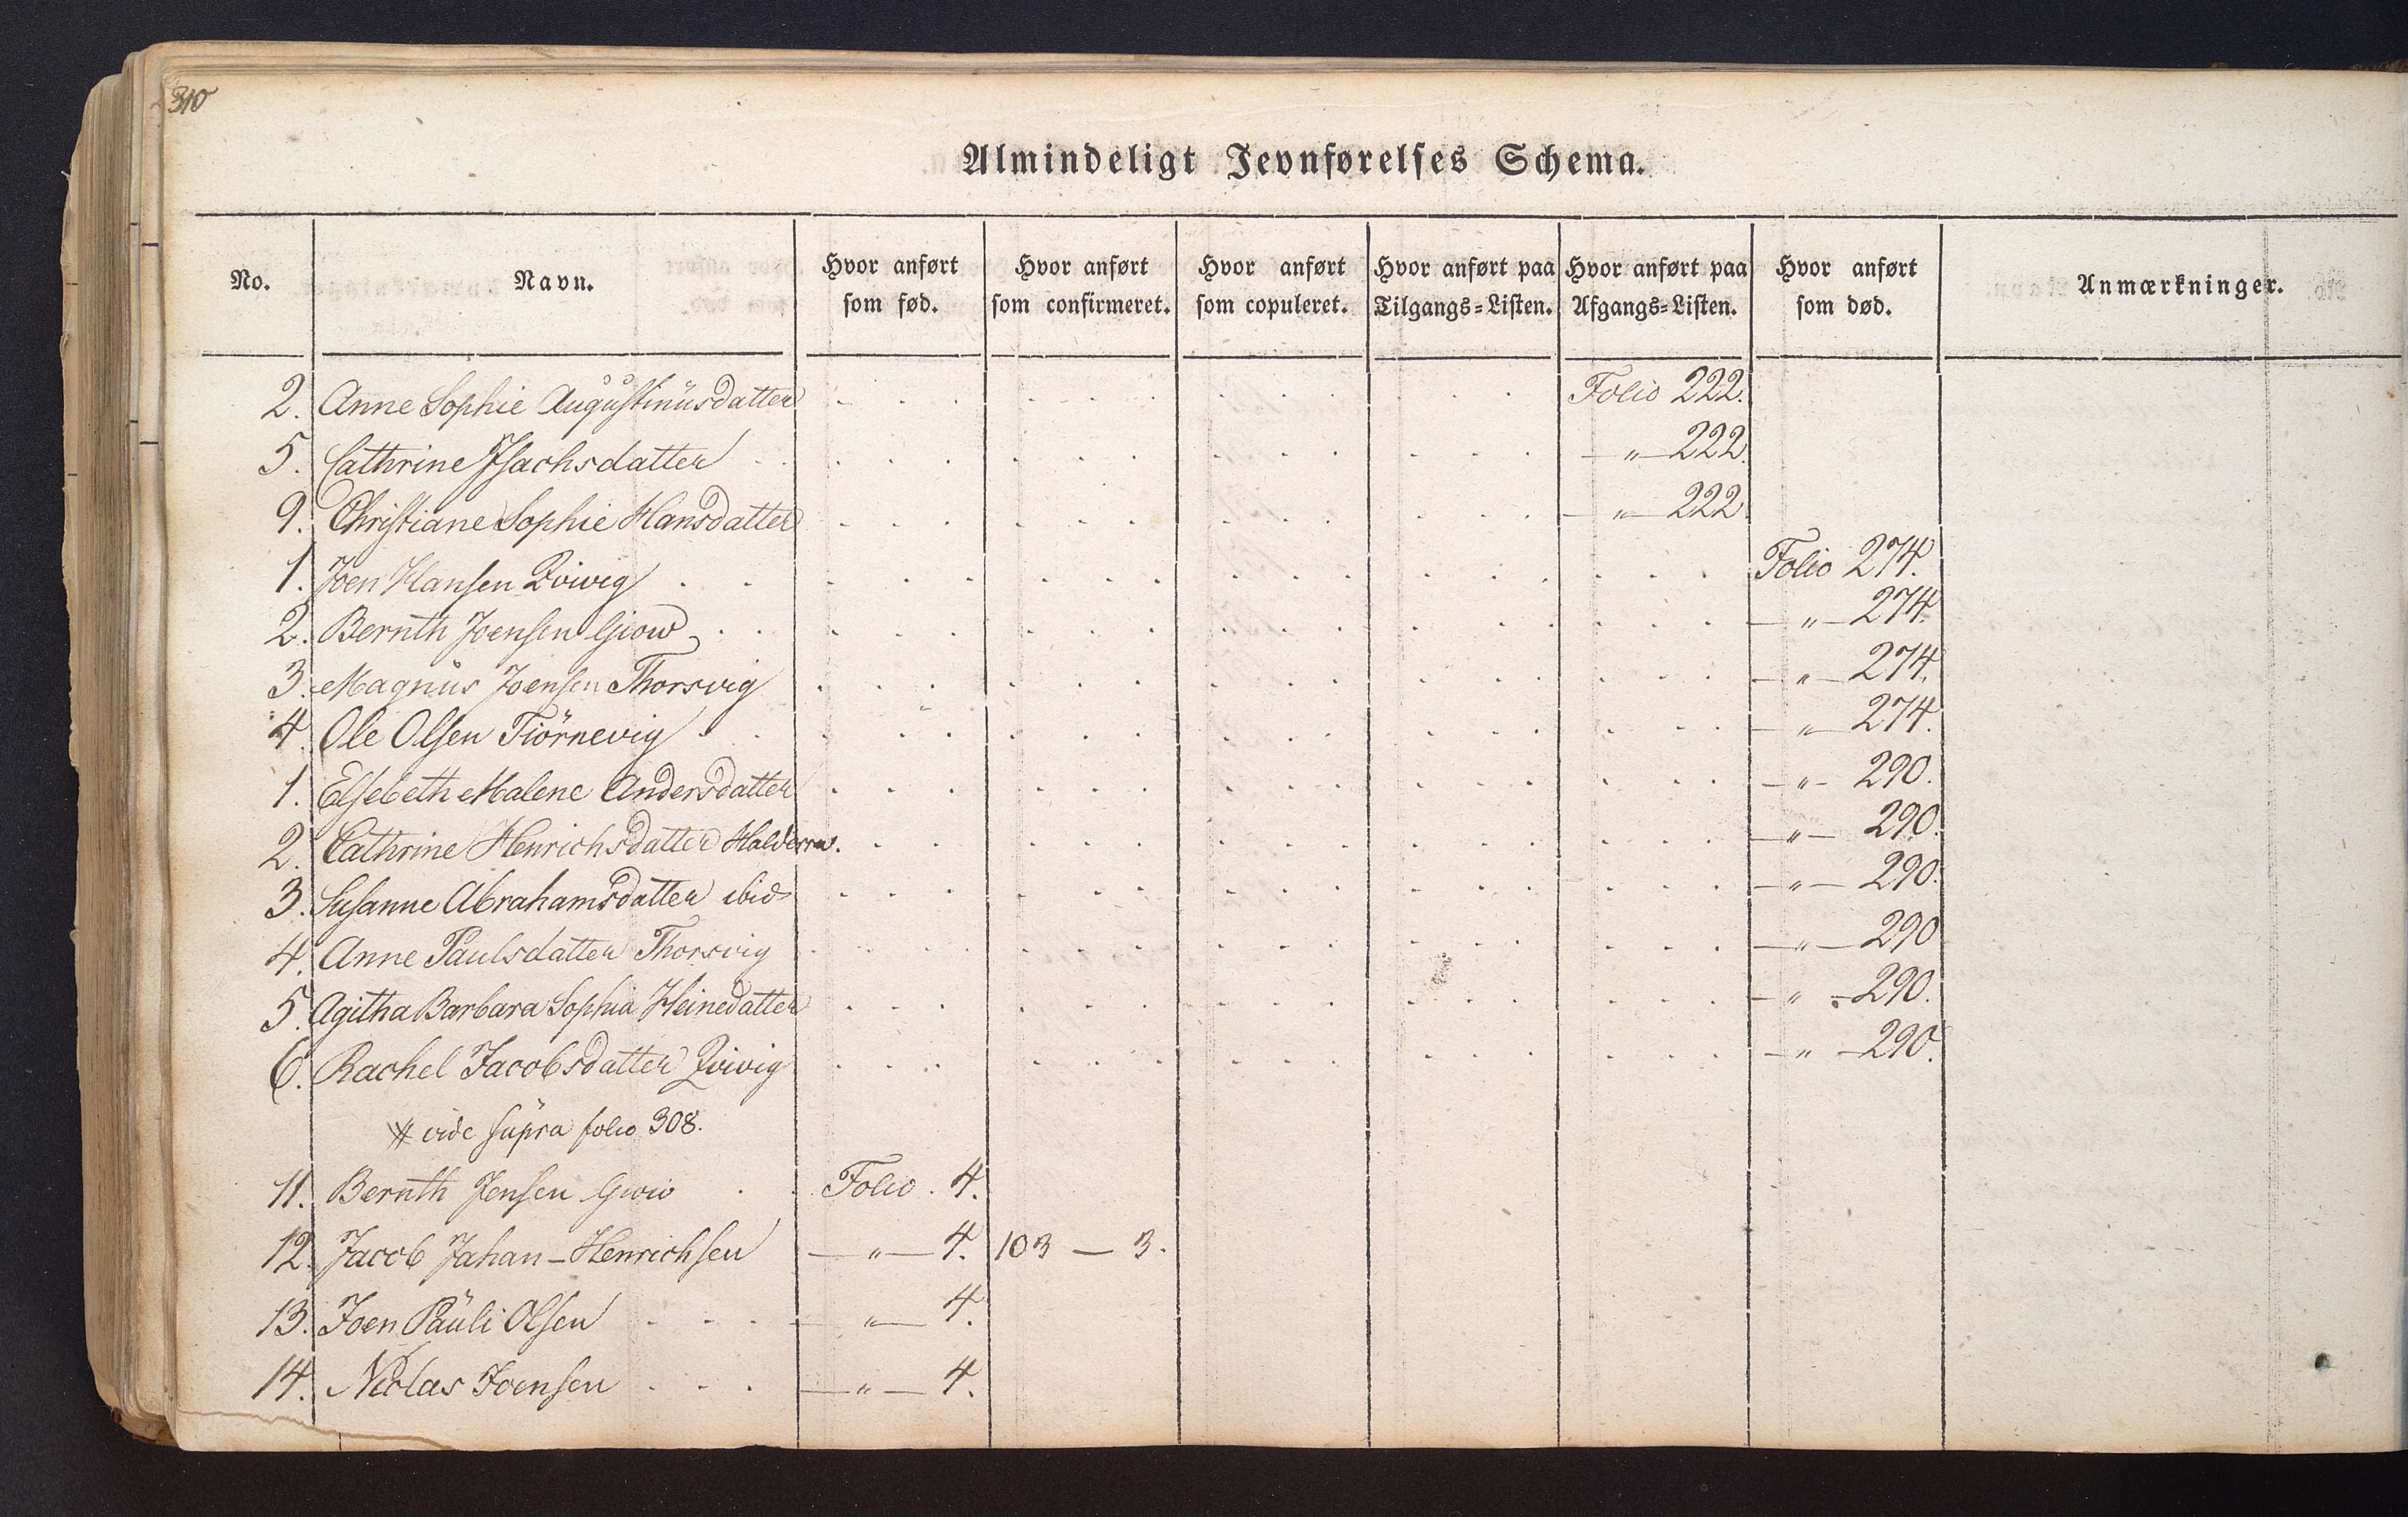 310
Almindeligt Jevnførelses Schema.
No. Navn. Hvor anført som fød. Hvor anført som confirmeret. Hvor anført som copuleret. Hvor anført paa Tilgangs=Listen. Hvor anført paa Afgangs=Listen. Hvor anført som død. Anmærkninger.
2. Anne Sophie Augustinusdatter Folio 222.
5. Cathrine Isachsdatter — " — 222.
9. Christiane Sophie Hansdatter — " — 222.
1. Joen Hansen Qvivig Folio 274.
2. Bernth Joensen Giow — " — 274.
3. Magnus Joensen Thorsvig — " — 274.
4. Ole Olsen Tiörnevig — " — 274.
1. Elsebeth Malene Andersdatter — " — 290.
2. Cathrine Henrichsdatter — " — 290.
3. Susanne Abrahamsdatter ibid — " — 290.
4. Anne Paulsdatter Thorsvig — " — 290
5. Agitha Barbara Sophia Heinedatter — " — 290.
6. Rachel Jacobsdatter Qvivig — " — 290.
vide supra folio 308.
11. Bernth Jensen Giow Folio. 4.
12. Jacob Jahan-Henrichsen — " — 4. 103 — 3.
13. Joen Pauli Olsen — " — 4.
14. Niclas Joensen — " — 4.